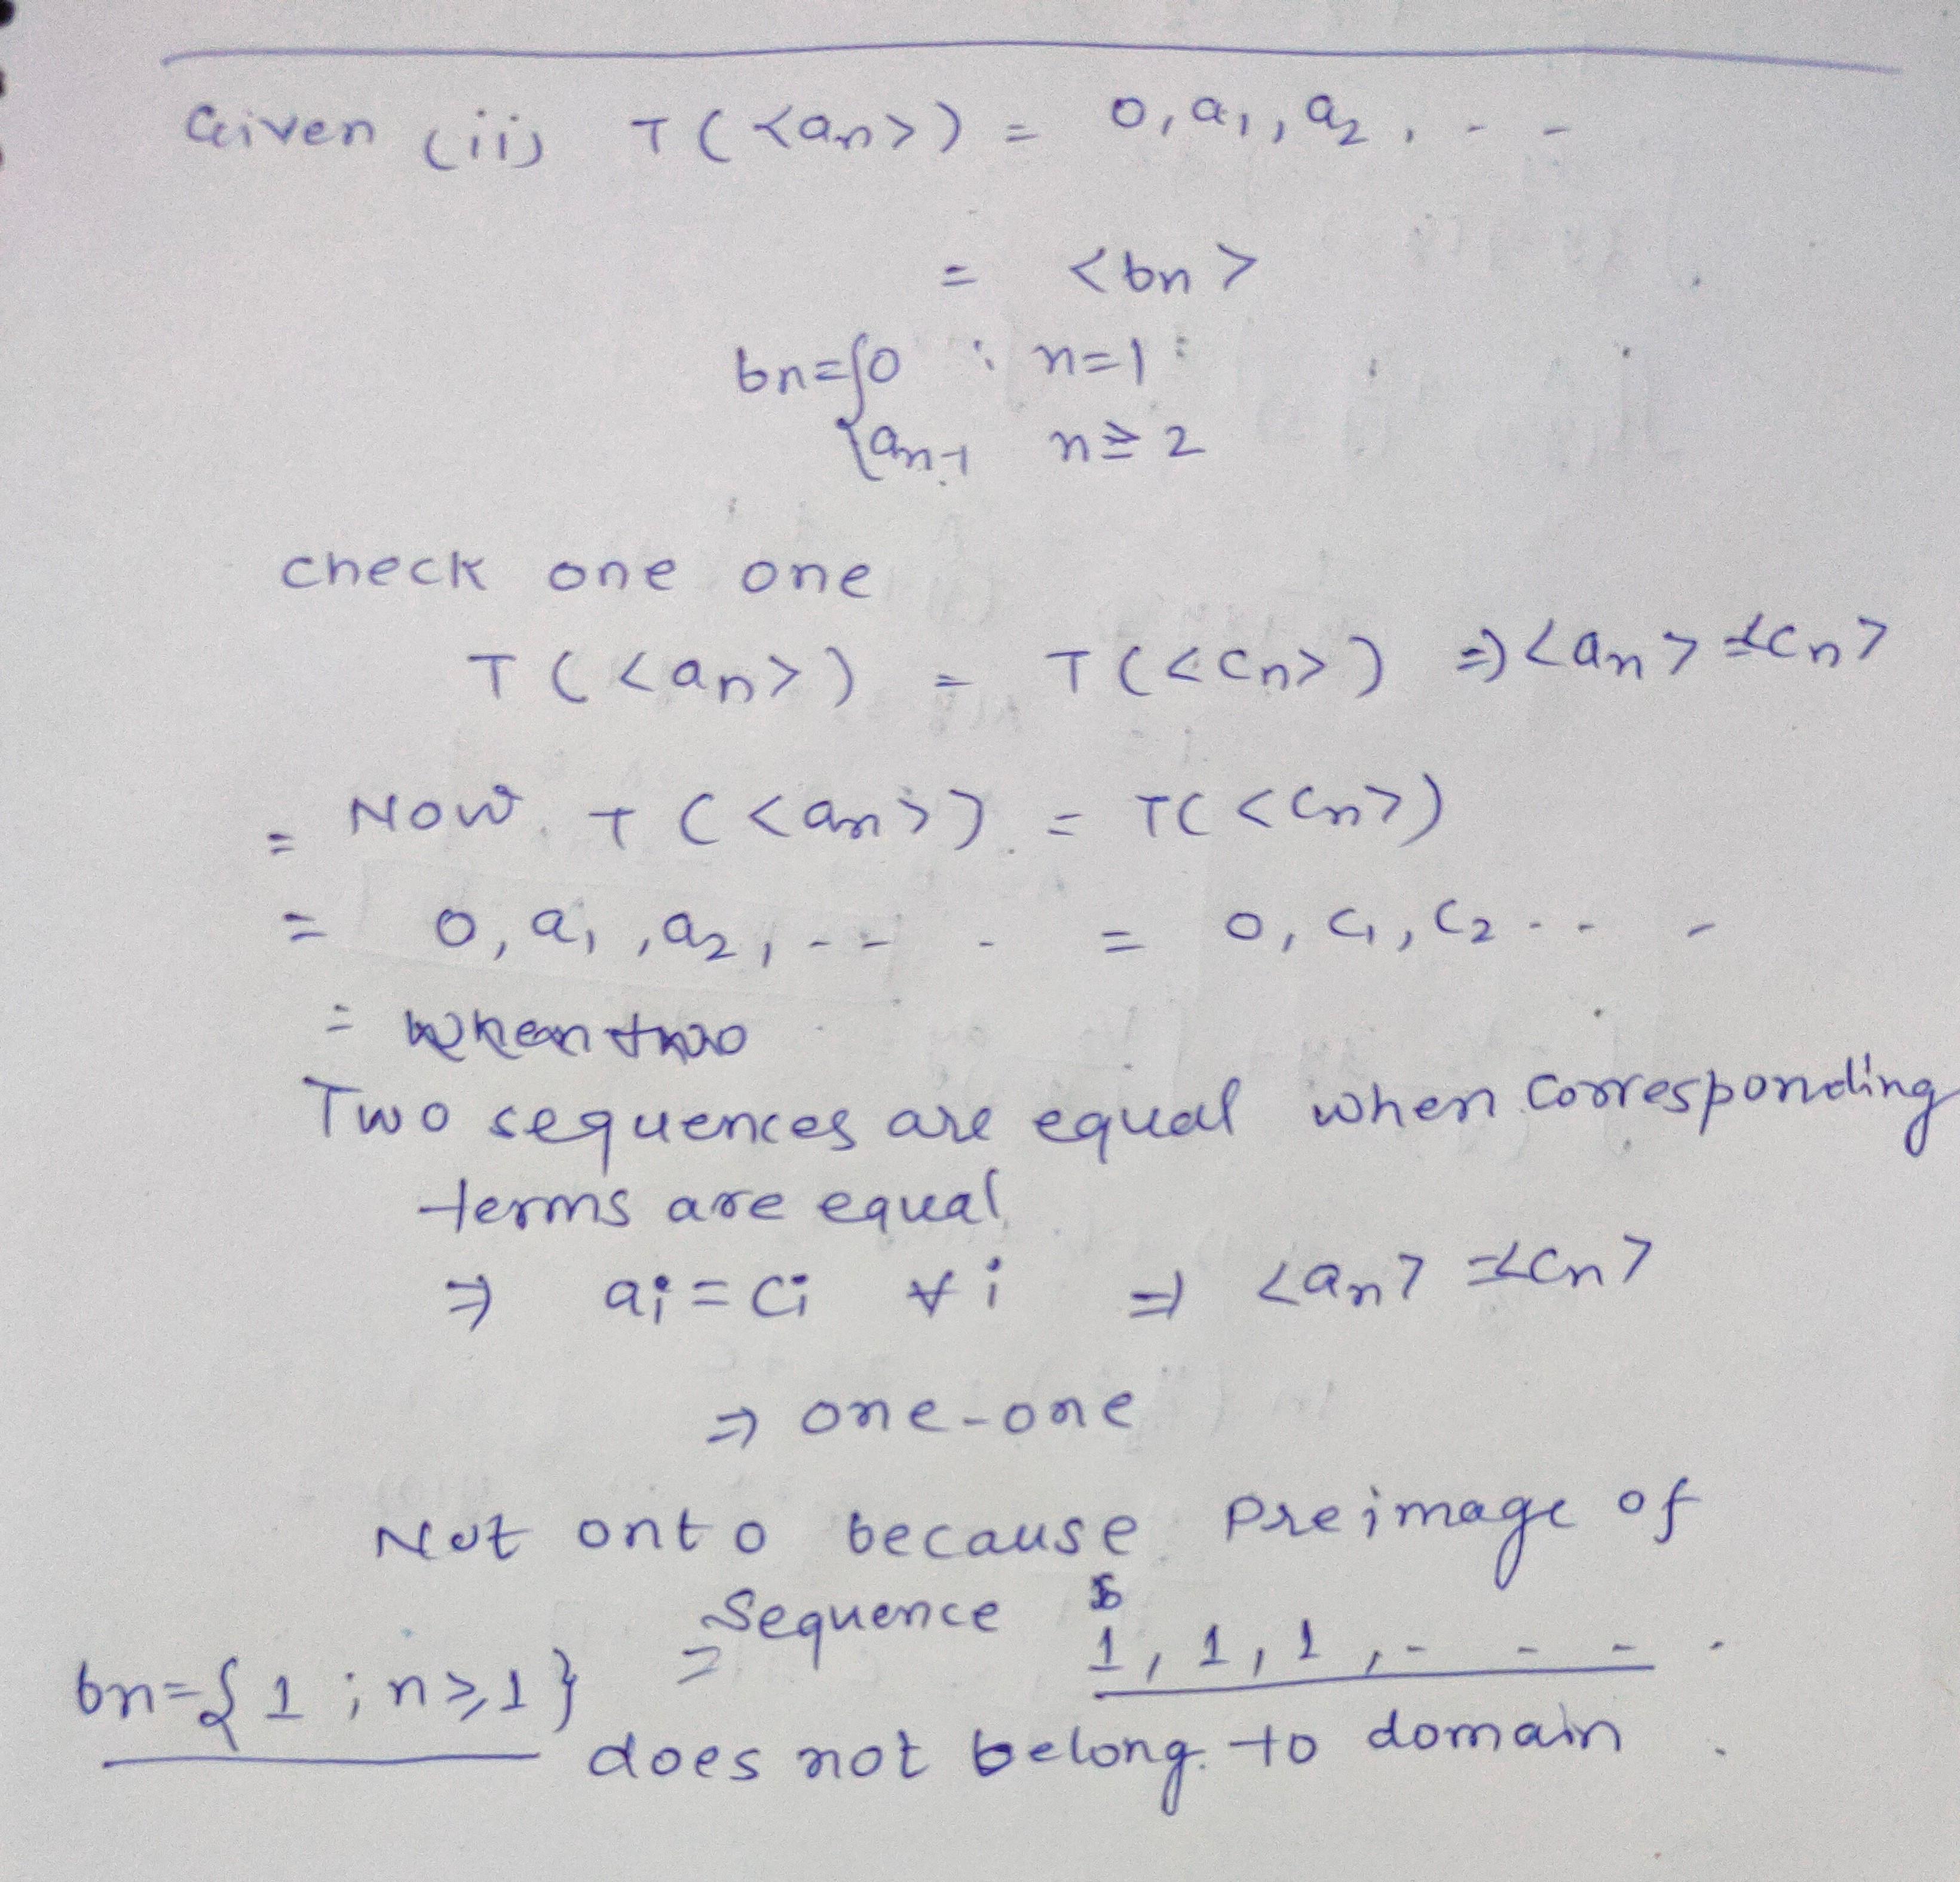 Given (ii) T(<an>) = 0, a1, a2, - -
= <bn>
bn = { 0 ; n=1
an-1 n≥2
check one one
T(<an>) = T(<cn>) ⇒ <an> = <cn>
= Now T(<an>) = T(<cn>)
= 0, a1, a2, - - - = 0, c1, c2 - - -
= When two
Two sequences are equal when corresponding
terms are equal
⇒ ai = ci ∀ i ⇒ <an> = <cn>
⇒ one-one
Not onto because Preimage of
= Sequence 1, 1, 1, - - - .
bn = { 1 ; n≥1 }
does not belong to domain .